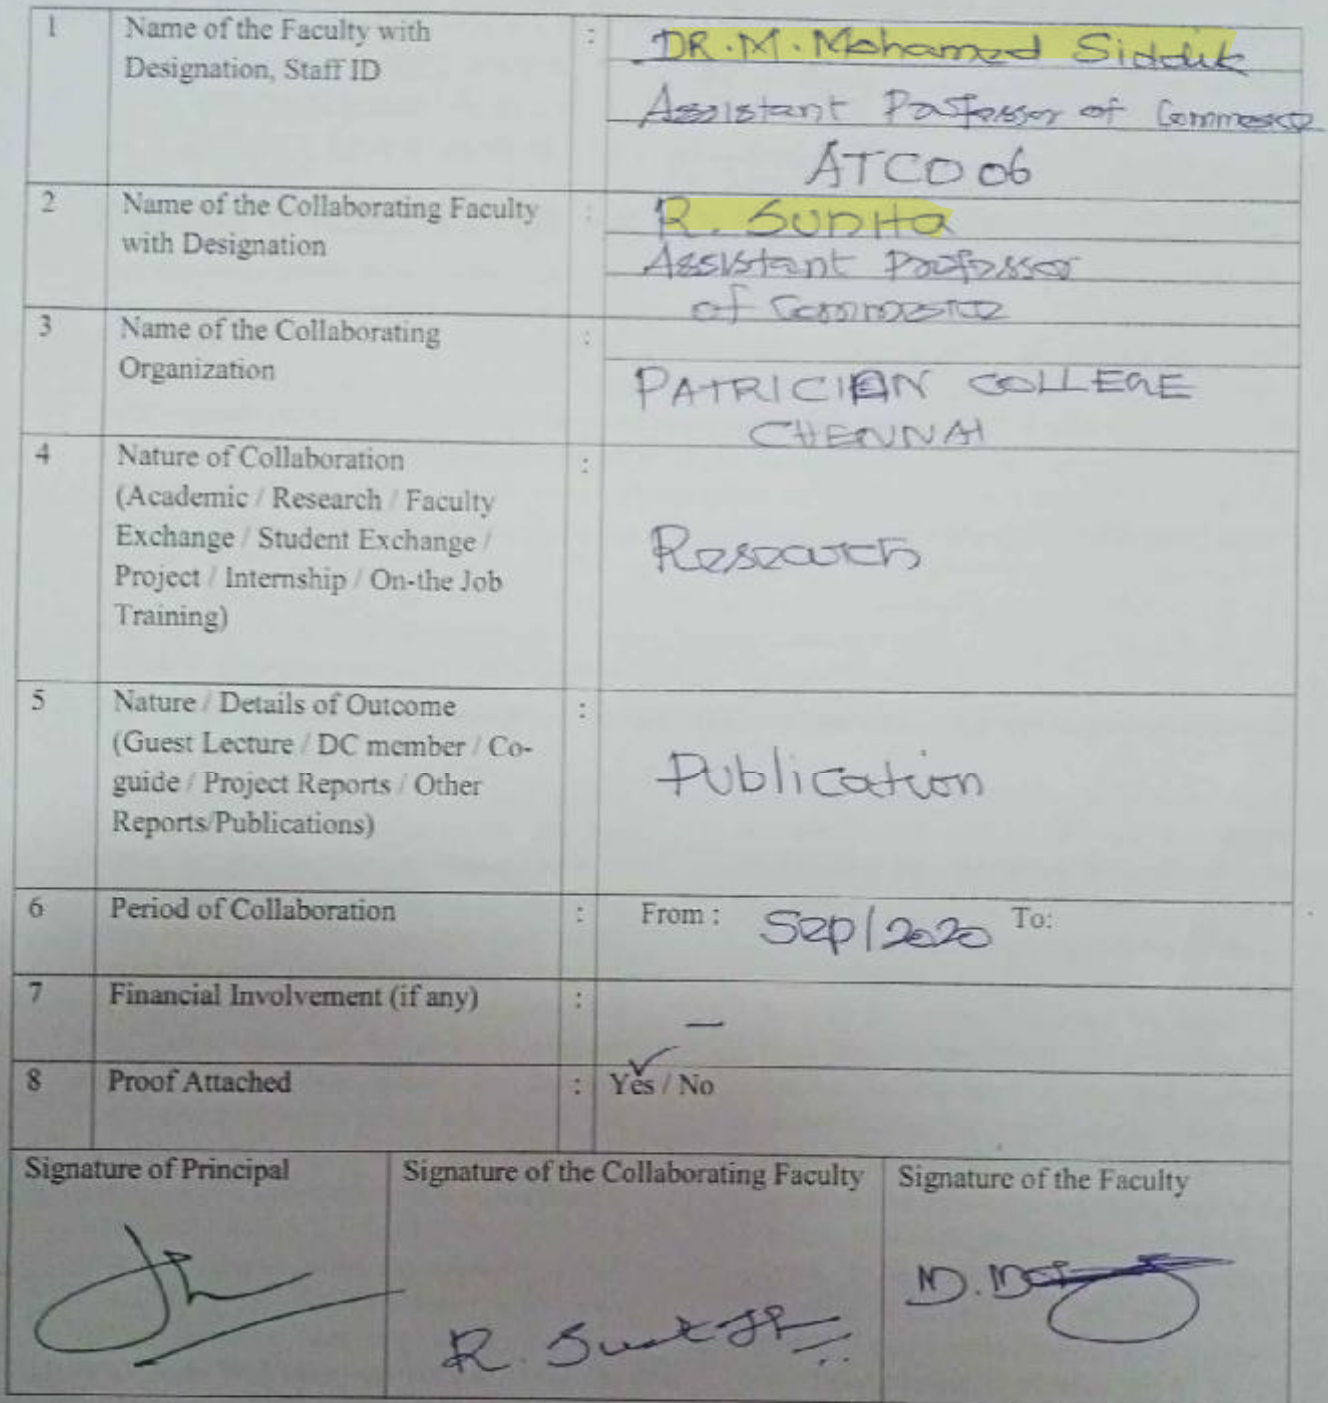 1 Name of the Faculty with : DR. M. Mohamed Siddik
Designation, Staff ID
Assistant Professor of Commerce
ATCO 06
2 Name of the Collaborating Faculty : R. SUDHA
with Designation Assistant Professor
of Commerce
3 Name of the Collaborating :
Organization PATRICIAN COLLEGE
CHENNAI
4 Nature of Collaboration :
(Academic / Research / Faculty
Exchange / Student Exchange / Research
Project / Internship / On-the Job
Training)
5 Nature / Details of Outcome :
(Guest Lecture / DC member / Co-
guide / Project Reports / Other Publication
Reports/Publications)
6 Period of Collaboration : From : Sep/2020 To:
7 Financial Involvement (if any) : —
8 Proof Attached : Yes / No
Signature of Principal Signature of the Collaborating Faculty Signature of the Faculty
R.